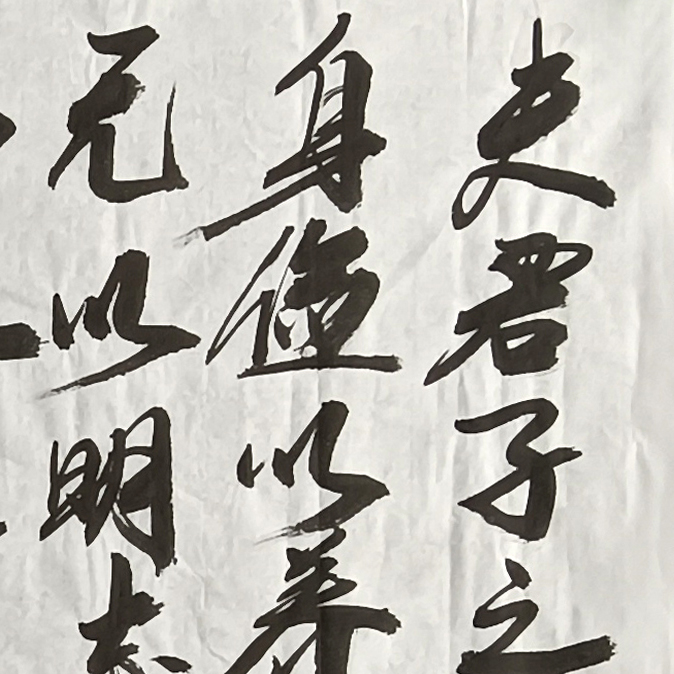 夫君子之
身俭以养
无以明志